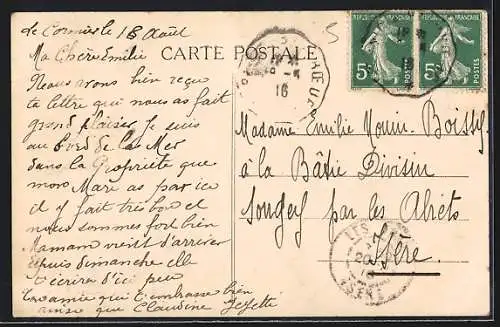 Le Cormier le 18 Août
Ma Chère Emilie
Nous avons bien reçu
ta lettre qui nous as fait
grand plaisir Je suis
au bord de la Mer
dans la Propriété que
mon Mare as par ici
il y fait très bon et
nous sommes fort bien
Maman vient d'arriver
depuis dimanche elle
t'écrira d'ici peu
Ton amie qui t'embrasse bien
ainsi que Claudine Zezette
CARTE POSTALE
5
16
REPUBLIQUE FRANÇAISE
5c
REPUBLIQUE FRANÇAISE
5c
Madame Emilie Youin-Boissy
à la Bâtie Divisin
par les Abrets
Isère
LES
20
16
ISERE